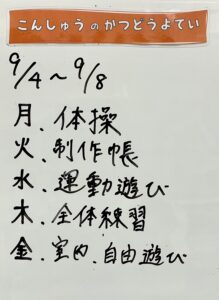 こんしゅうのかつどうよてい
9/4～9/8
月、体操
火、制作帳
水、運動遊び
木、全体練習
金、室内、自由遊び